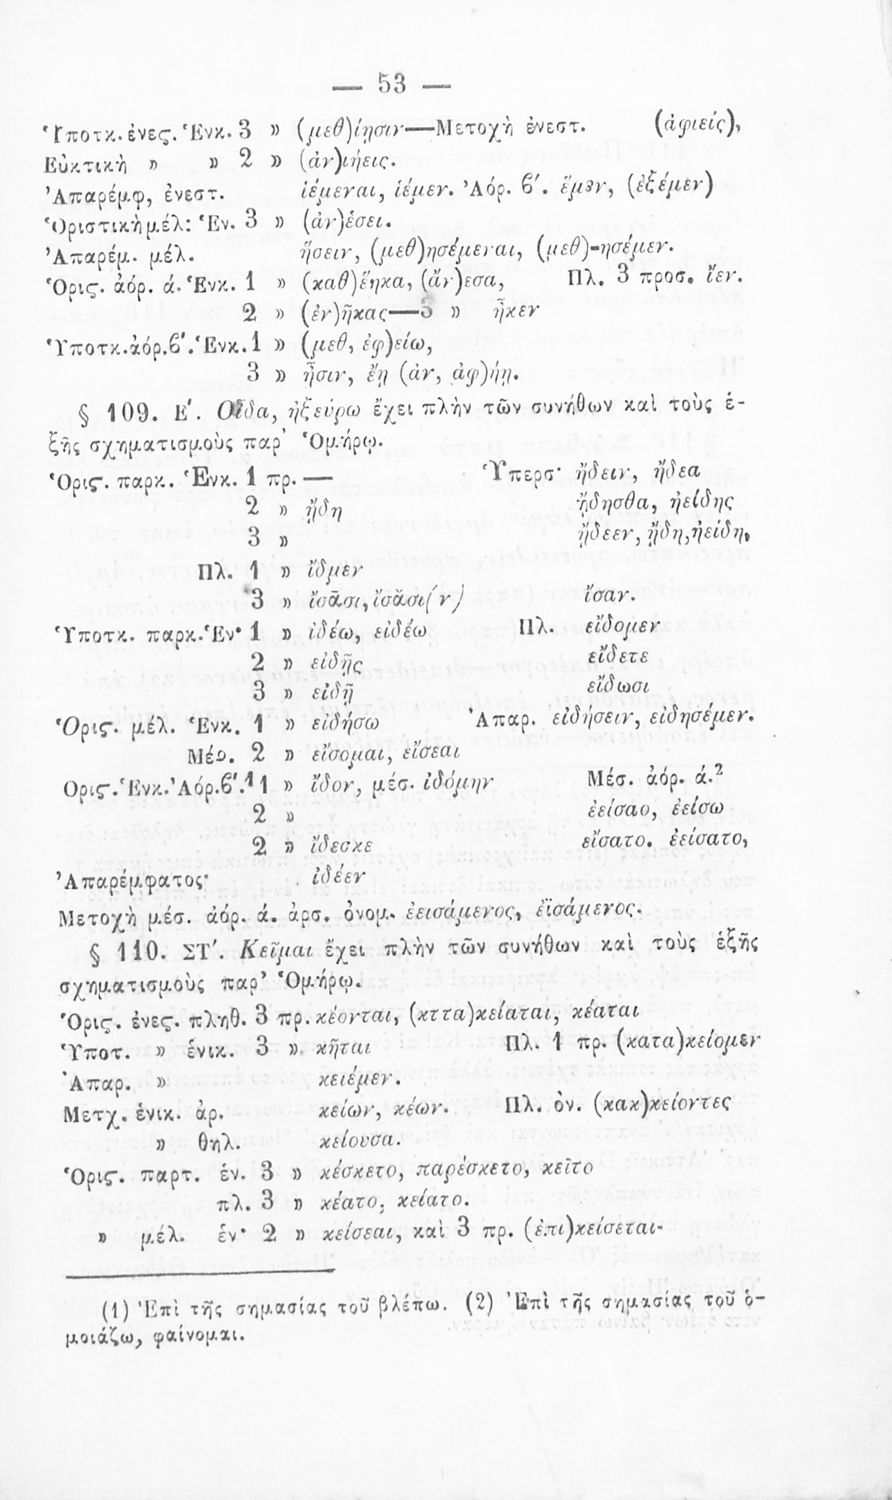 — 53 —
Ὑποτκ. ἐνεϛ. Ἑνκ. 3 » (μεθ)ίῃσιν—Μετοχὴ ἐνεστ. (ἀφιείς),
Εὐκτικὴ » » 2 » (ἀν)ιήεις.
Ἀπαρέμφ, ἐνεστ. ἱέμεναι, ἱέμεν. Ἀόρ. β΄. ἕμεν, (ἐξέμεν)
Ὁριστικὴ μέλ: Ἑν. 3 » (ἀν)έσει.
Ἀπαρέμ. μέλ. ἥσειν, (μεθ)ησέμεναι, (μεθ)-ησέμεν.
Ὁριϛ. ἀόρ. ά. Ἑνκ. 1 » (καθ)ἕηκα, (ἄν)εσα, Πλ. 3 προσ. ἵεν.
2 » (ἐν)ῆκας—3 » ἧκεν
Ὑποτκ. ἀόρ. β΄. Ἑνκ. 1 » (μεθ, ἐφ)είω,
3 » ᾗσιν, ἕῃ (ἀν, ἀφ)ήῃ.
§ 109. Ε΄. Οἶδα, ἠξεύρω ἔχει πλὴν τῶν συνήθων καὶ τοὺς ἑ-
ξῆς σχηματισμοὺς παρ᾽ Ὁμήρῳ.
Ὁριϛ. παρκ. Ἑνκ. 1 πρ. — Ὑπερσ· ᾔδειν, ᾔδεα
2 » ᾔδη ᾔδησθα, ἠείδης
3 » ᾔδεεν, ᾔδη, ἠείδη,
Πλ. 1 » ἴδμεν
3 » ἴσᾶσι, ἴσᾰσι(ν) ἴσαν.
Ὑποτκ. παρκ. Ἑν· 1 » ἰδέω, εἰδέω Πλ. εἴδομεν
2 » εἰδῇς εἴδετε
3 » εἰδῇ εἴδωσι
Ὁριϛ. μέλ. Ἑνκ. 1 » εἰδήσω Ἀπαρ. εἰδήσειν, εἰδησέμεν.
Μέσ. 2 » εἴσομαι, εἴσεαι
Οριϛ. Ἑνκ. Ἀόρ. β΄.¹ 1 » ἴδον, μέσ. ἰδόμην Μέσ. ἀόρ. ά.²
2 » ἐείσαο, ἐείσω
2 » ἴδεσκε εἴσατο. ἐείσατο,
Ἀπαρέμφατος· ἰδέειν
Μετοχὴ μέσ. ἀόρ. ά. ἀρσ. ὀνομ. ἐεισάμενος, ἐϊσάμενος.
§ 110. ΣΤ΄. Κεῖμαι ἔχει πλὴν τῶν συνήθων καὶ τοὺς ἑξῆς
σχηματισμοὺς παρ᾽ Ὁμήρῳ.
Ὁριϛ. ἐνεϛ. πληθ. 3 πρ. κέονται, (κττα)κείαται, κέαται
Ὑποτ. » ἑνικ. 3 » κῆται Πλ. 1 πρ. (κατα)κείομεν
Ἀπαρ. » κειέμεν.
Μετχ. ἑνικ. ἀρ. κείων, κέων. Πλ. ὀν. (κακ)κείοντες
» θηλ. κείουσα.
Ὁριϛ. παρτ. ἑν. 3 » κέσκετο, παρέσκετο, κεῖτο
πλ. 3 » κέατο, κείατο.
» μέλ. ἑν· 2 » κείσεαι, καὶ 3 πρ. (ἐπι)κείσεται·
(1) Ἐπὶ τῆς σημασίας τοῦ βλέπω. (2) Ἐπὶ τῆς σημασίας τοῦ ὁ-
μοιάζω, φαίνομαι.